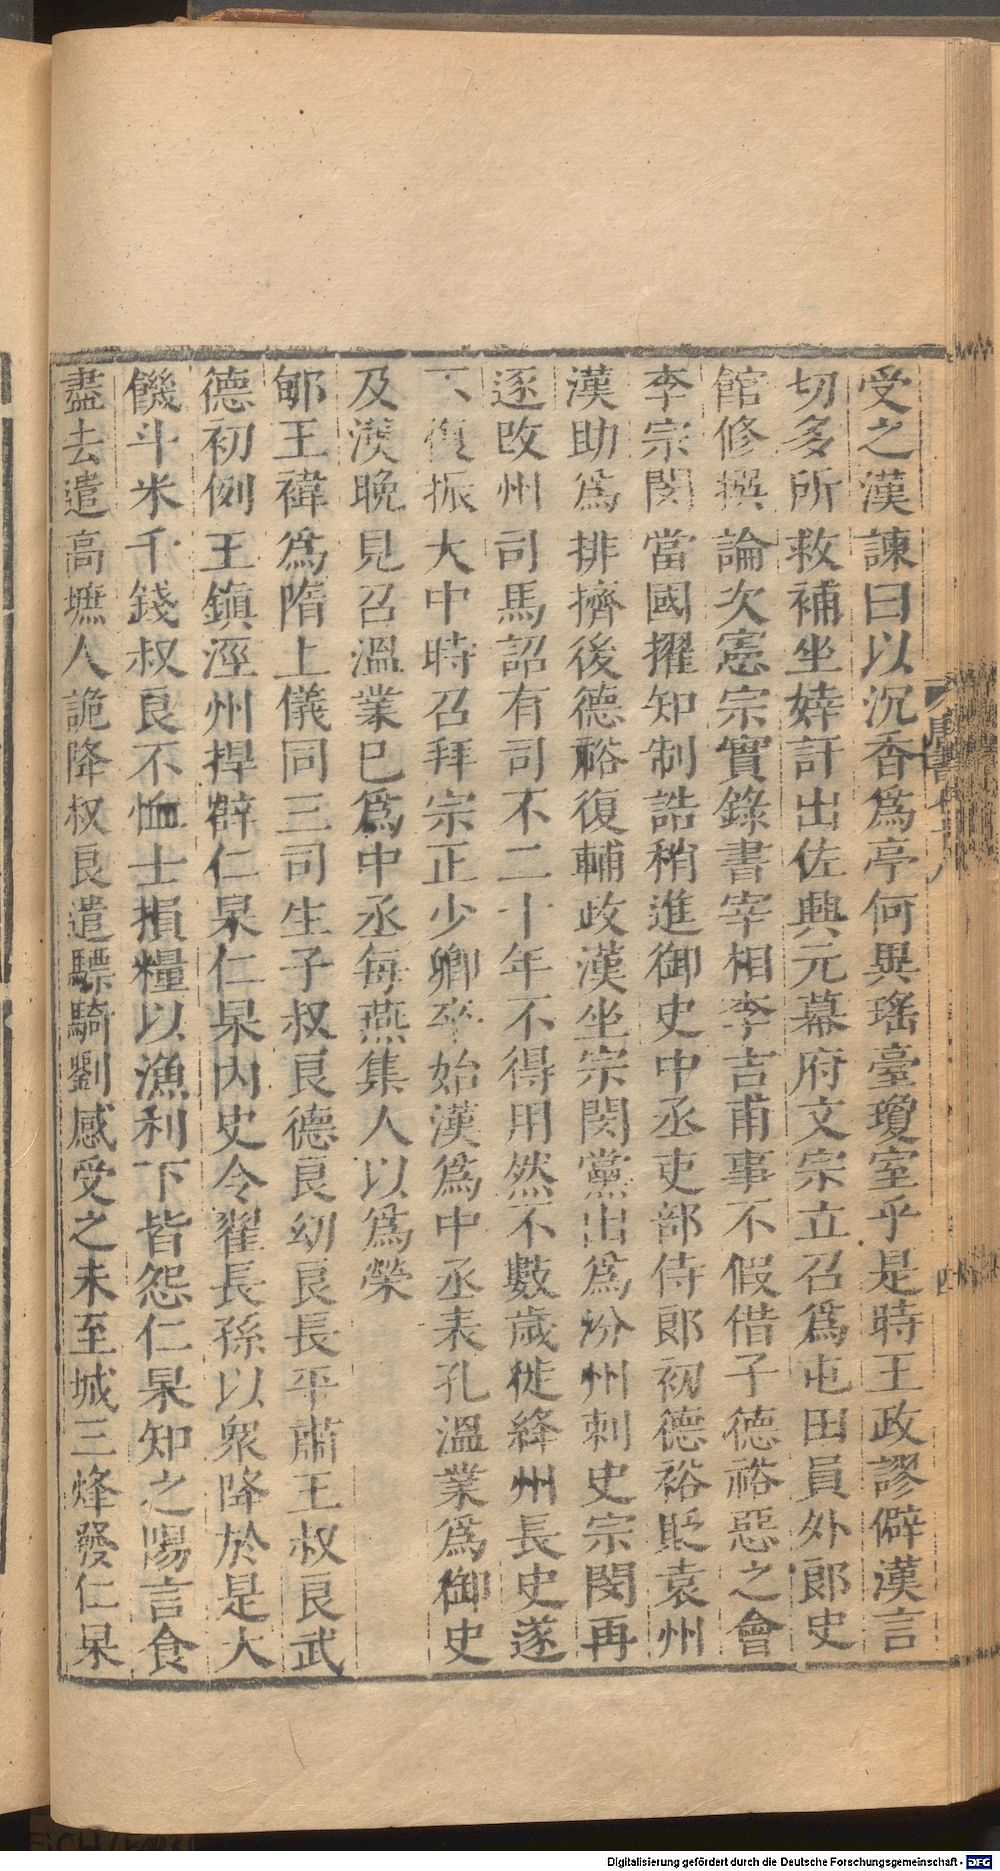 受之漢諫曰以沉香爲亭何異瑤臺瓊室乎是時王政謬僻漢言
切多所救補坐婞訐出佐興元幕府文宗立召爲屯田員外郎史
館修撰論次憲宗實錄書宰相李吉甫事不假借子德裕惡之會
李宗閔當國擢知制誥稍進御史中丞吏部侍郎初德裕貶袁州
漢助爲排擠後德裕復輔政漢坐宗閔黨出爲汾州刺史宗閔再
逐改州司馬詔有司不二十年不得用然不數歲徙絳州長史遂
不復振大中時召拜宗正少卿卒始漢爲中丞表孔溫業爲御史
及漢晚見召溫業已爲中丞每燕集人以爲榮
郇王褘爲隋上儀同三司生子叔良德良幼良長平肅王叔良武
德初例王鎮涇州捍薛仁杲仁杲內史令翟長孫以衆降於是大
饑斗米千錢叔良不恤士損糧以漁利下皆怨仁杲知之陽言食
盡去遣高墌人詭降叔良遣驃騎劉感受之未至城三烽發仁杲
唐書
四
Digitalisierung gefördert durch die Deutsche Forschungsgemeinschaft - DFG